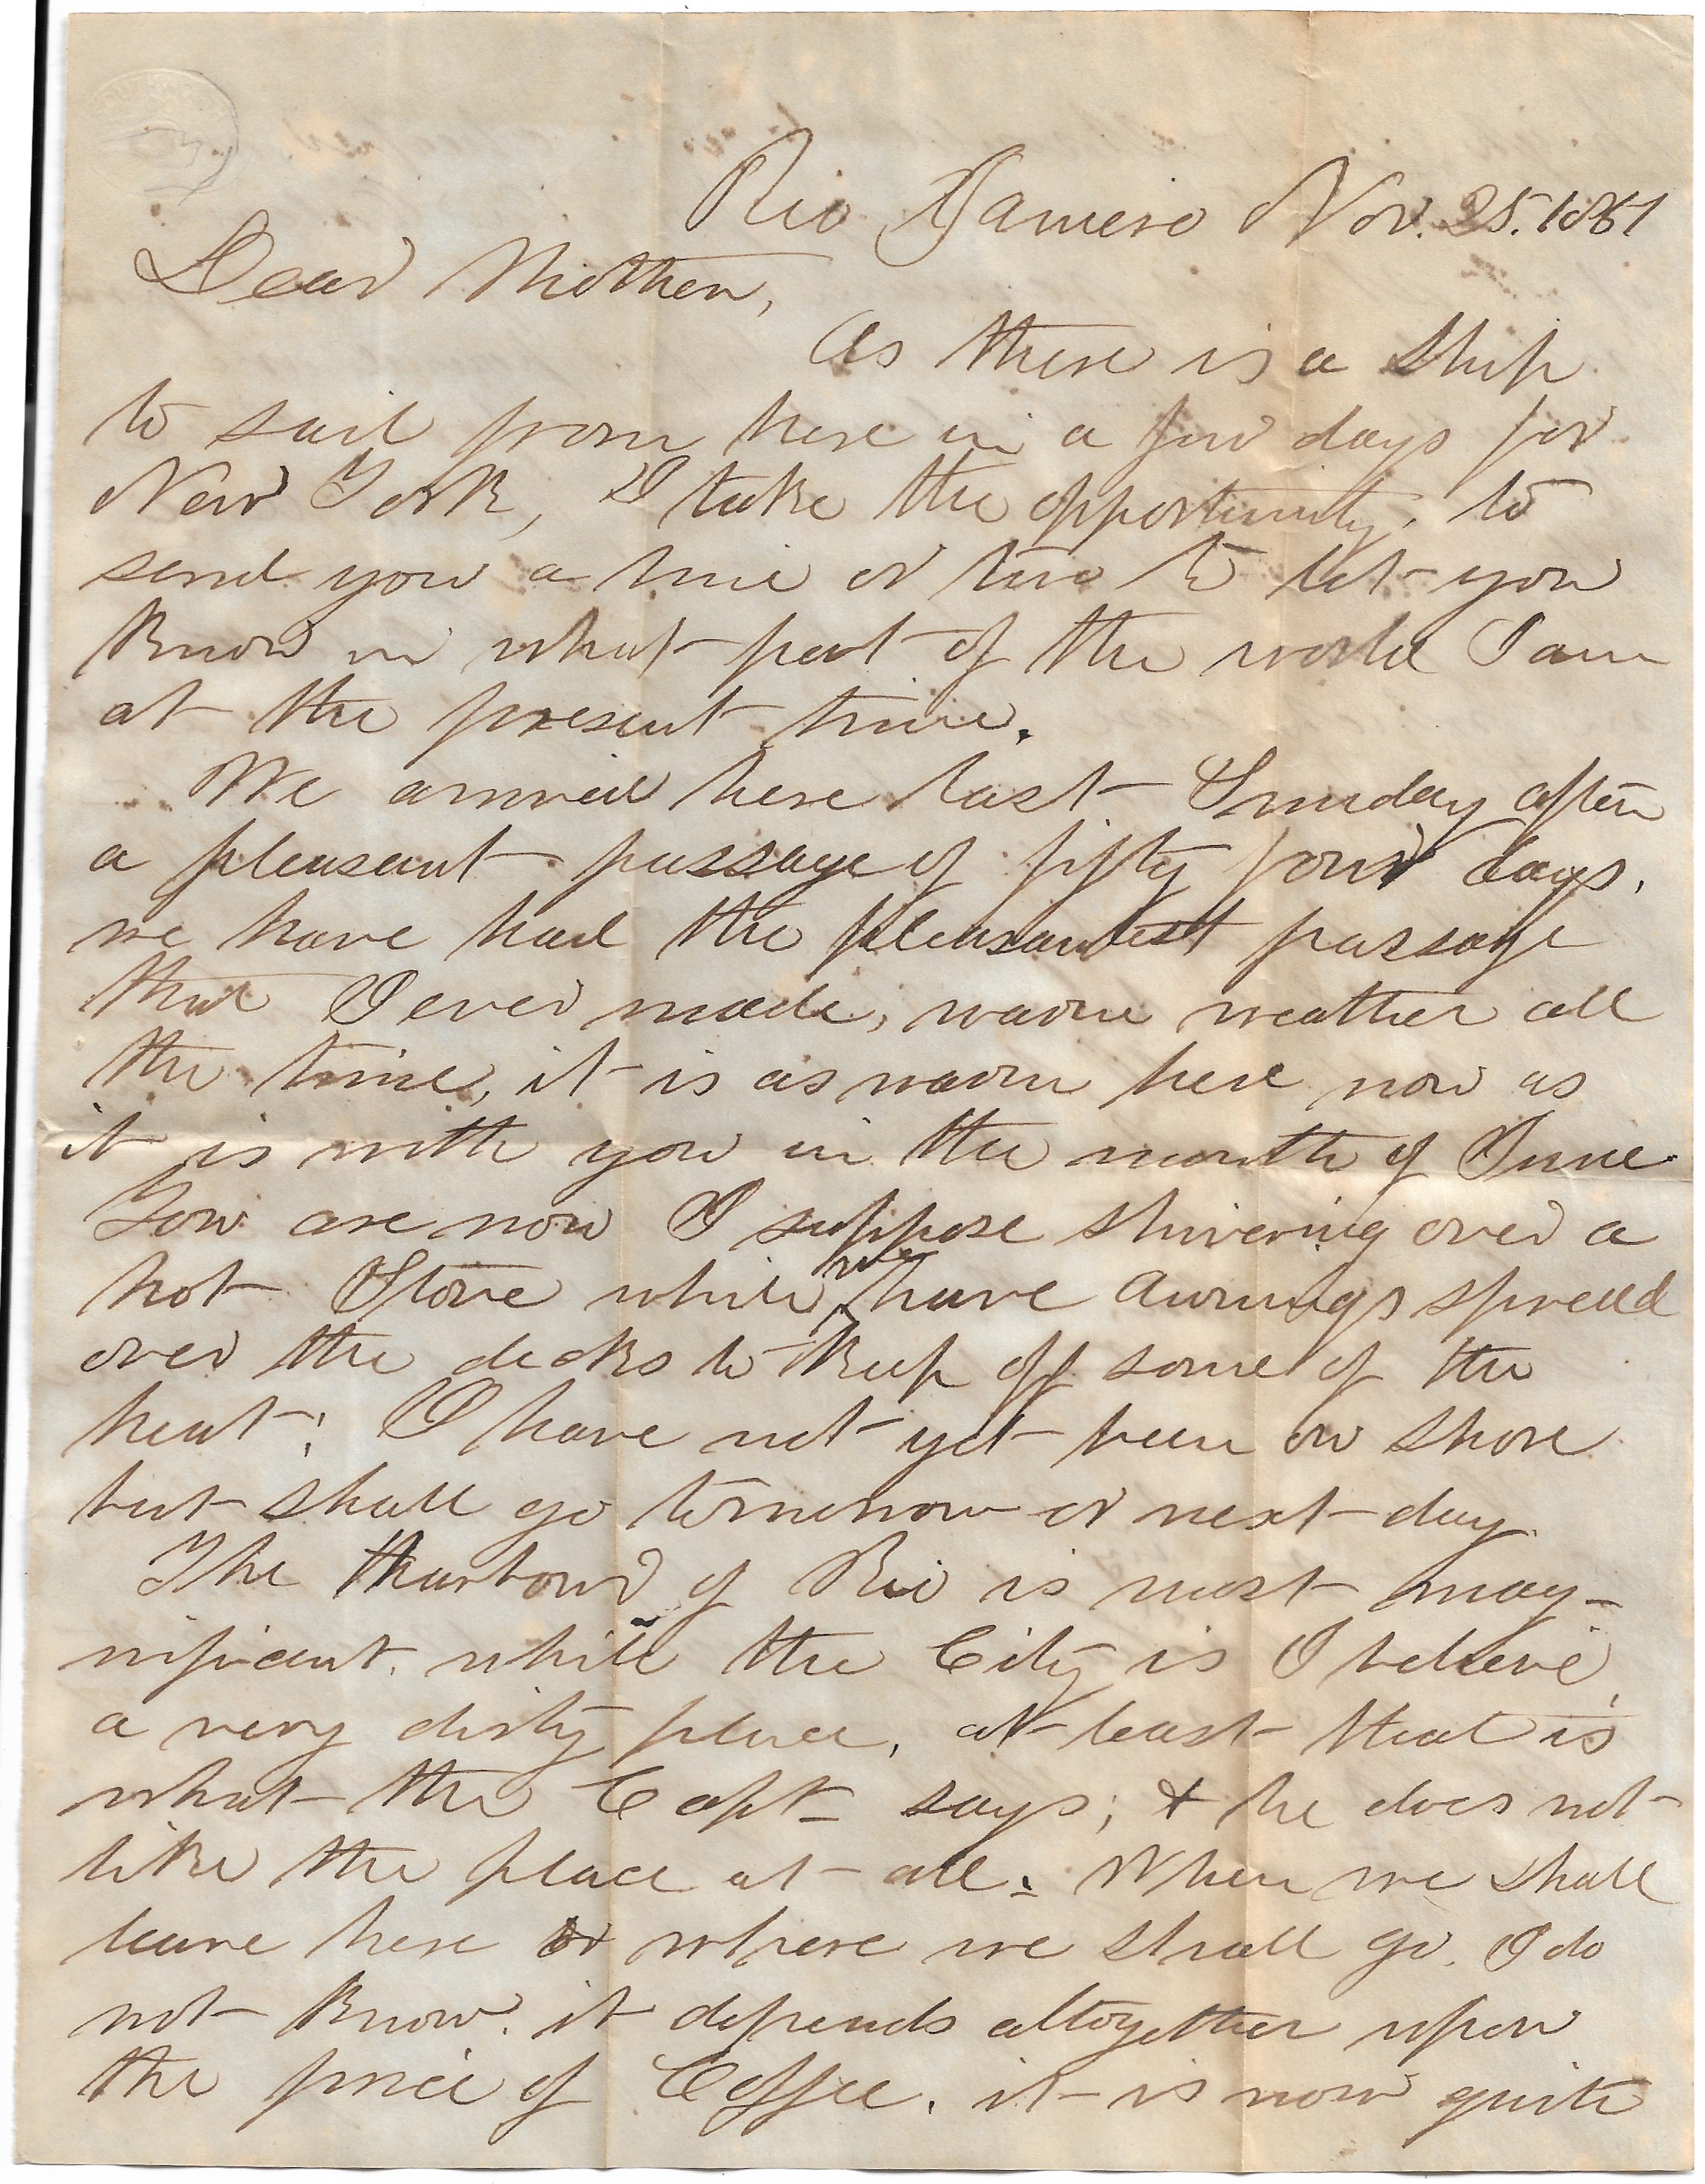 Rio Janiero Nov. 25. 1861
Dear Mother,
As there is a ship
to sail from here in a few days for
New York, I take the opportunity, to
send you a line or two to let you
know in what part of the world I am
at the present time.
We arrived here last Sunday after
a pleasant passage of fifty four days,
we have had the pleasantest passage
that I ever made, warm weather all
the time, it is as warm here now as
it is with you in the month of June.
You are now I suppose shivering over a
hot Stove while we have awnings spread
over the decks to keep off some of the
heat; I have not yet been on shore
but shall go tomorrow or next day.
The Harbour of Rio is most mag-
nificent. while the City is I believe,
a very dirty place, at least that is
what the Capt says; & he does not
like the place at all. When we shall
leave here or where we shall go. I do
not know. it depends altogether upon
the price of Coffee. it is now quite